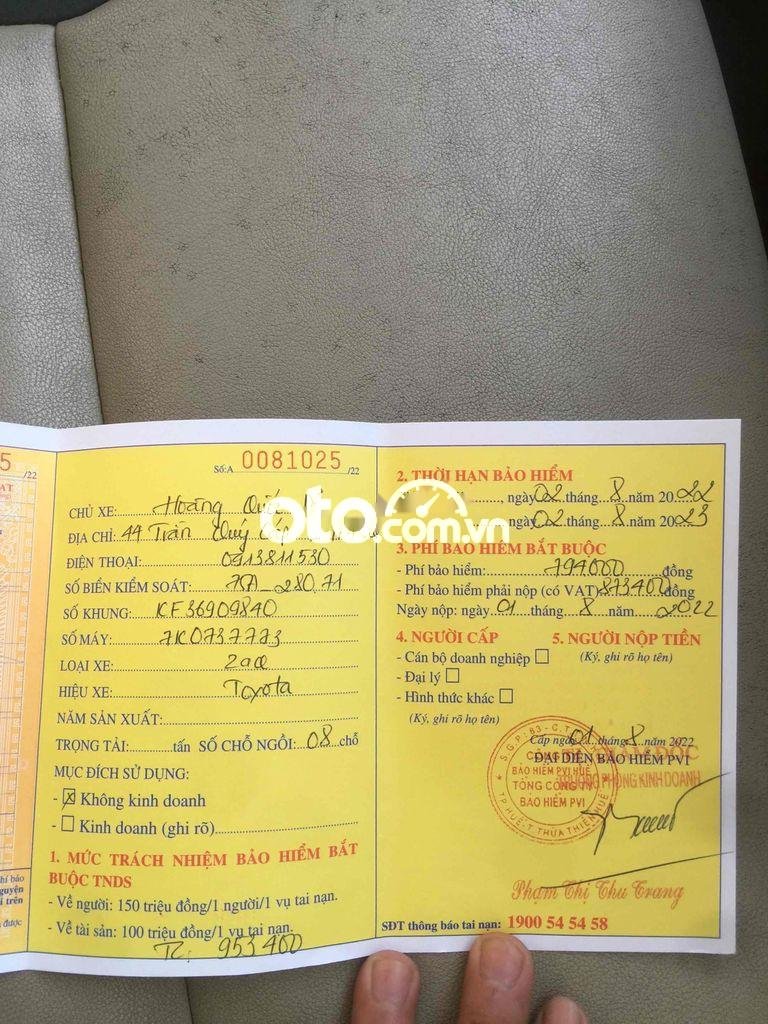 5 /22
Số:A 0081025 /22
CHỦ XE: Hoàng Quốc
ĐỊA CHỈ: 44 Trần Quý Cáp
ĐIỆN THOẠI: 0913811530
SỐ BIỂN KIỂM SOÁT: 7CA_280.71
SỐ KHUNG: KF36909840
SỐ MÁY: 7K0737773
LOẠI XE: Zace
HIỆU XE: Toyota
NĂM SẢN XUẤT:
TRỌNG TẢI: tấn SỐ CHỖ NGỒI: 08 chỗ
MỤC ĐÍCH SỬ DỤNG:
- Không kinh doanh
- Kinh doanh (ghi rõ)
1. MỨC TRÁCH NHIỆM BẢO HIỂM BẮT
BUỘC TNDS
- Về người: 150 triệu đồng/1 người/1 vụ tai nạn.
- Về tài sản: 100 triệu đồng/1 vụ tai nạn.
TC: 953400
oto.com.vn
2. THỜI HẠN BẢO HIỂM
, ngày 02 tháng 8 năm 2022
ngày 02 tháng 8 năm 2023
3. PHÍ BẢO HIỂM BẮT BUỘC
- Phí bảo hiểm: 794000 đồng
- Phí bảo hiểm phải nộp (có VAT) 873400 đồng
Ngày nộp: ngày 01 tháng 8 năm 2022
4. NGƯỜI CẤP 5. NGƯỜI NỘP TIỀN
- Cán bộ doanh nghiệp (Ký, ghi rõ họ tên)
- Đại lý
- Hình thức khác
(Ký, ghi rõ họ tên)
Cấp ngày 01 tháng 8 năm 2022
ĐẠI DIỆN BẢO HIỂM PVI
PHÒNG KINH DOANH
BẢO HIỂM PVI HUẾ
TỔNG CÔNG TY
BẢO HIỂM PVI
TP HUẾ-T.THỪA THIÊN HUẾ
Phạm Thị Thu Trang
SĐT thông báo tai nạn: 1900 54 54 58